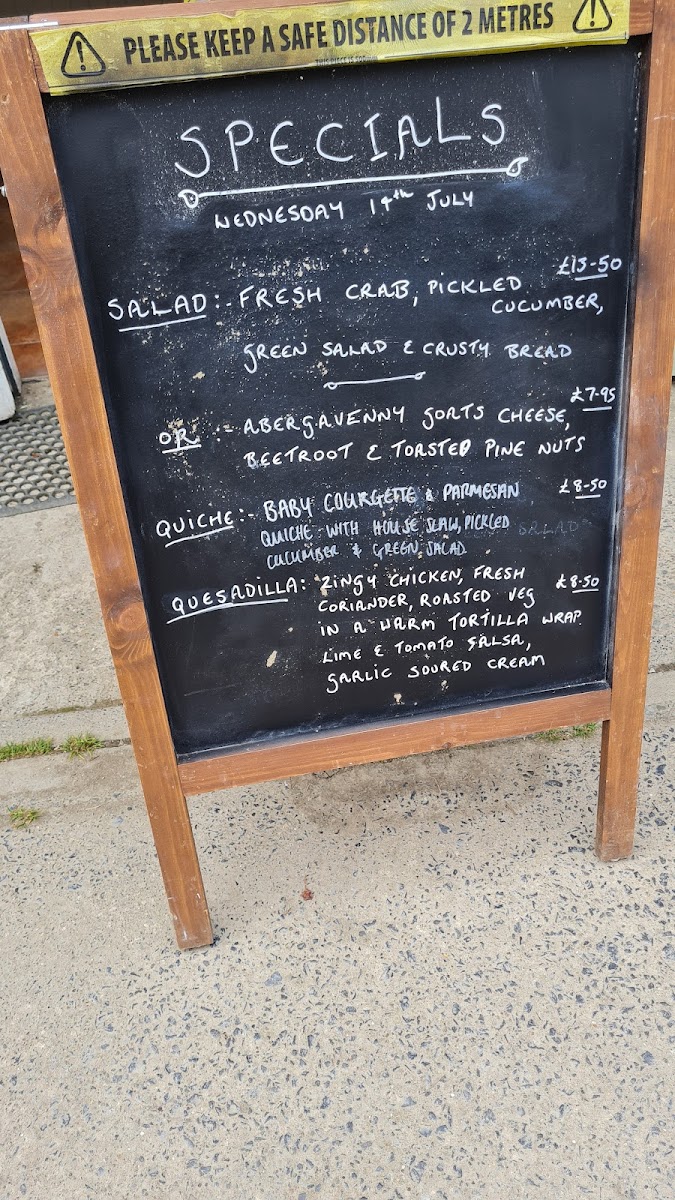 PLEASE KEEP A SAFE DISTANCE OF 2 METRES
SPECIALS
WEDNESDAY 14th JULY
£13-50
SALAD:- FRESH CRAB, PICKLED
CUCUMBER,
GREEN SALAD & CRUSTY BREAD
£7-95
OR :- ABERGAVENNY GOATS CHEESE,
BEETROOT & TOASTED PINE NUTS
QUICHE:- BABY COURGETTE & PARMESAN £8-50
QUICHE WITH HOUSE SLAW, PICKLED
CUCUMBER & GREEN SALAD
QUESADILLA: ZINGY CHICKEN, FRESH £8.50
CORIANDER, ROASTED VEG
IN A WARM TORTILLA WRAP
LIME & TOMATO SALSA,
GARLIC SOURED CREAM